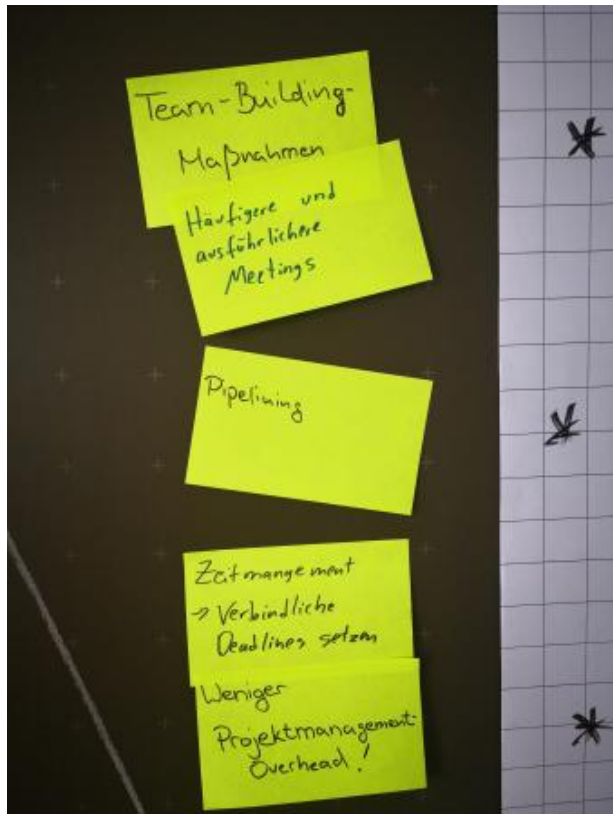 Team-Building-
Maßnahmen
Häufigere und
ausführlichere
Meetings
Pipelining
Zeitmangement
→ Verbindliche
Deadlines setzen
Weniger
Projektmanagement-
Overhead!